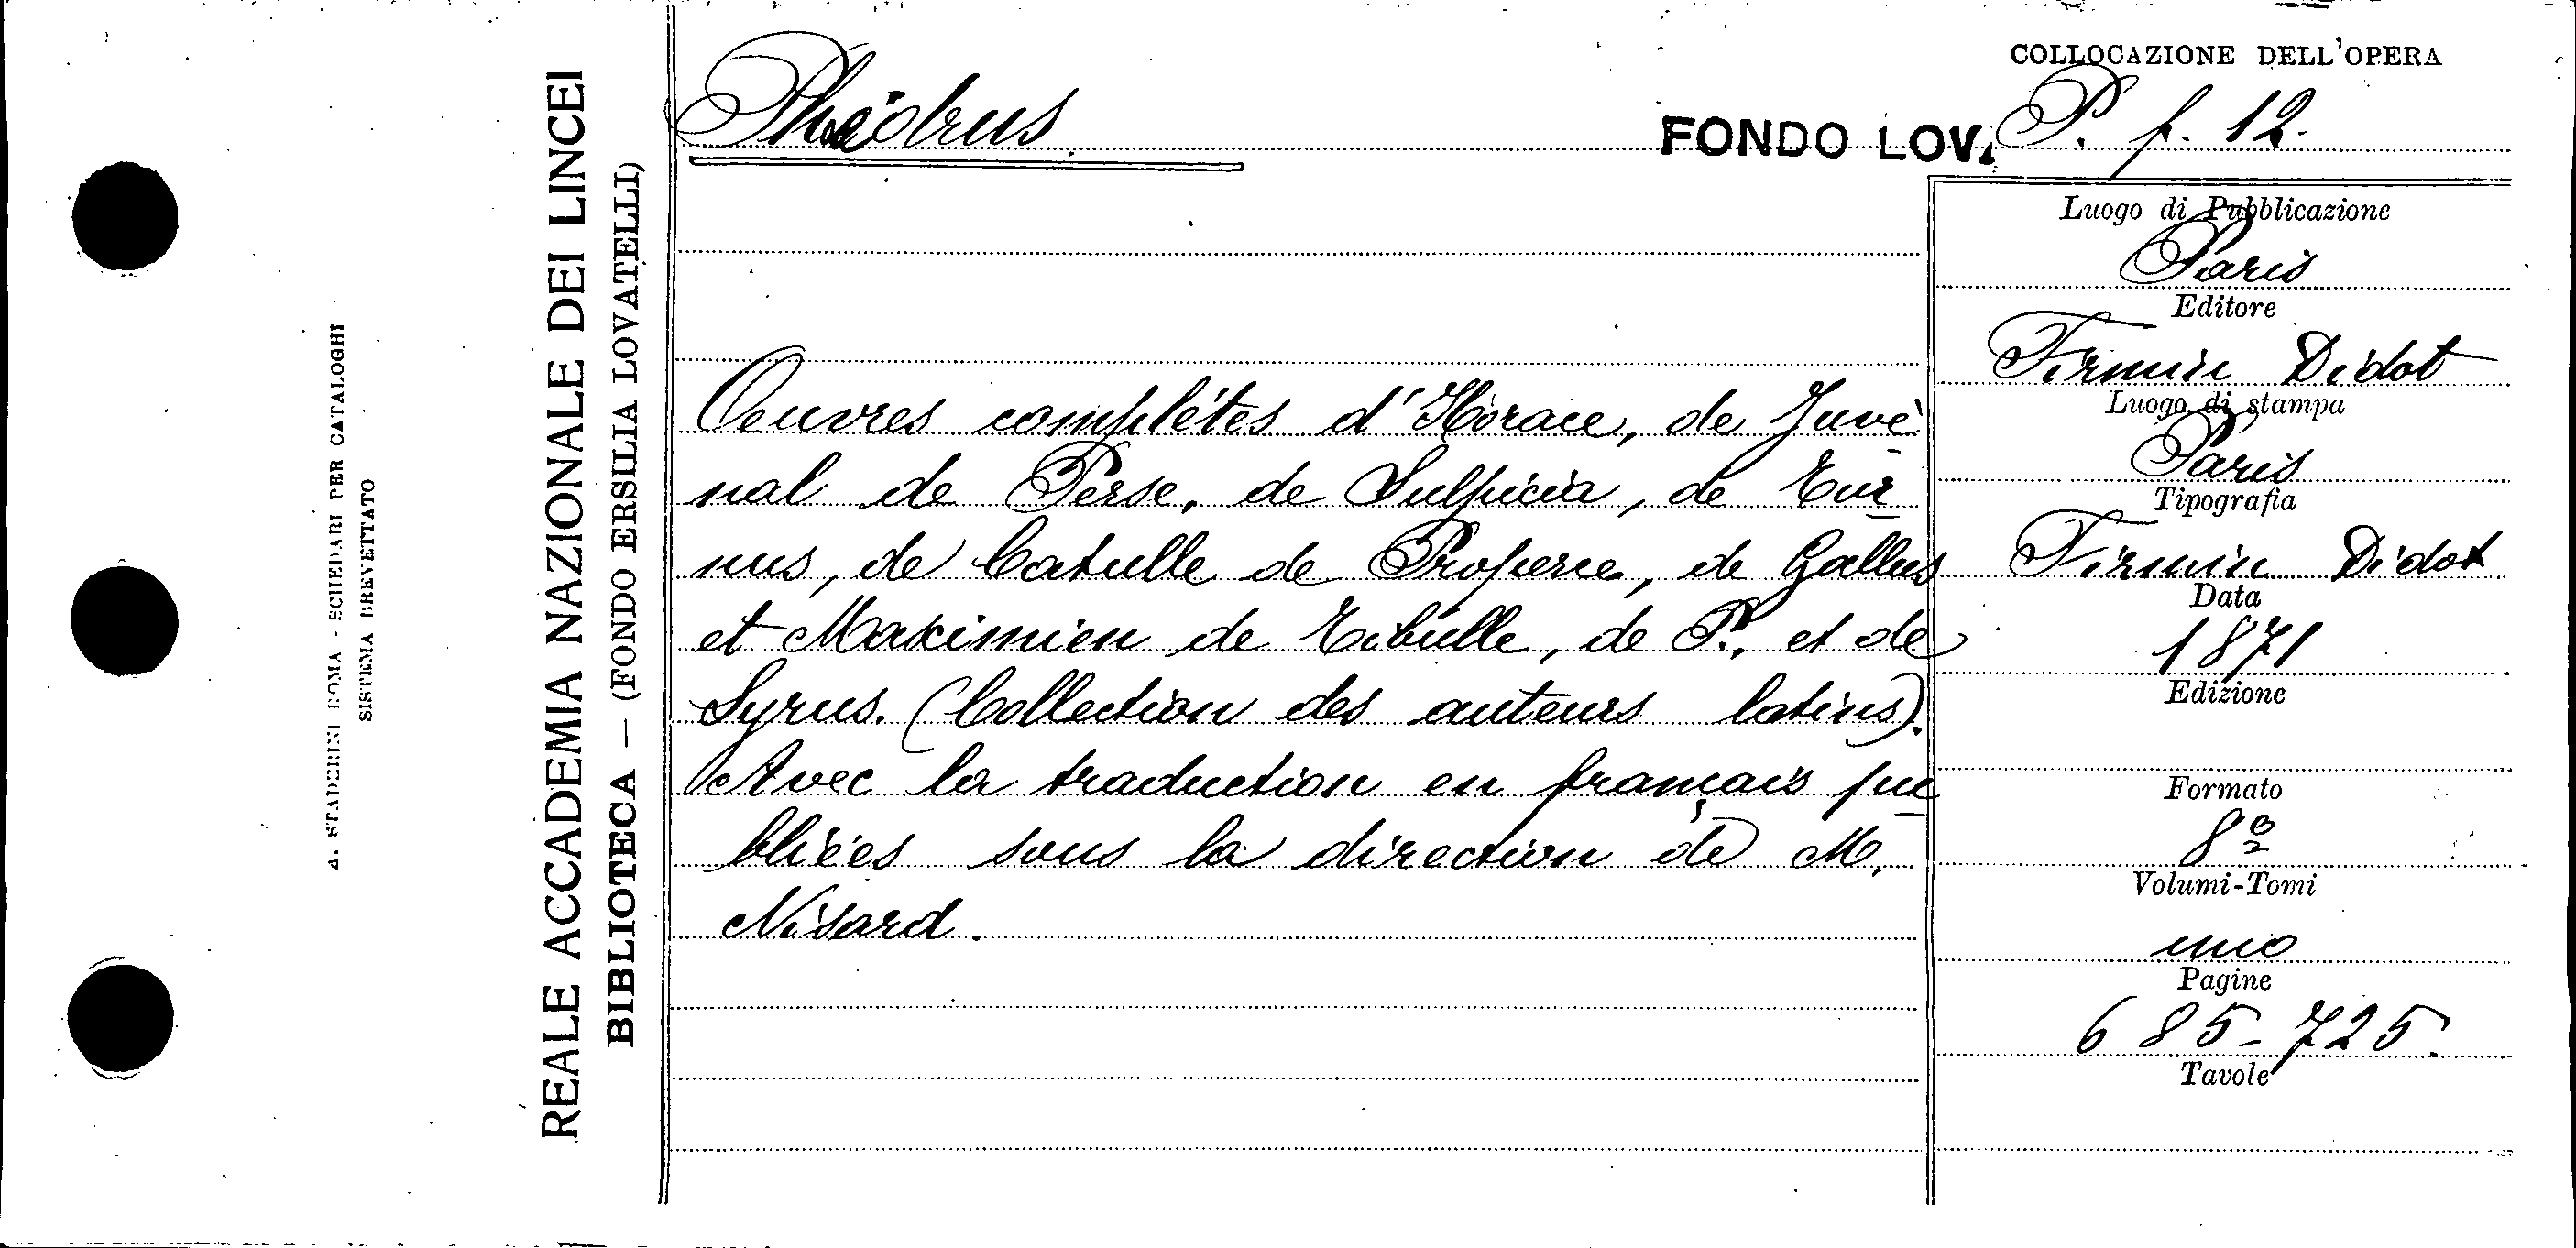 A. STADERINI ROMA - SCHEDARI PER CATALOGHI
SISTEMA BREVETTATO
REALE ACCADEMIA NAZIONALE DEI LINCEI
BIBLIOTECA — (FONDO ERSILIA LOVATELLI)
COLLOCAZIONE DELL'OPERA
FONDO LOV. P. f. 12.
Oeuvres complétes d'Horace, de Juvè
nal de Perse, de Sulpicia, de Tur
nus, de Catulle de Properce, de Gallus
et Maximien de Tibulle, de P., et de
Syrus. (Collection des auteurs latins).
Avec la traduction en français pu
bliées sous la direction de M.
Nisard.
Luogo di Pubblicazione
Paris
Editore
Firmin Didot
Luogo di stampa
Paris
Tipografia
Firmin Didot
Data
1871
Edizione
Formato
8º
Volumi-Tomi
uno
Pagine
685-725.
Tavole